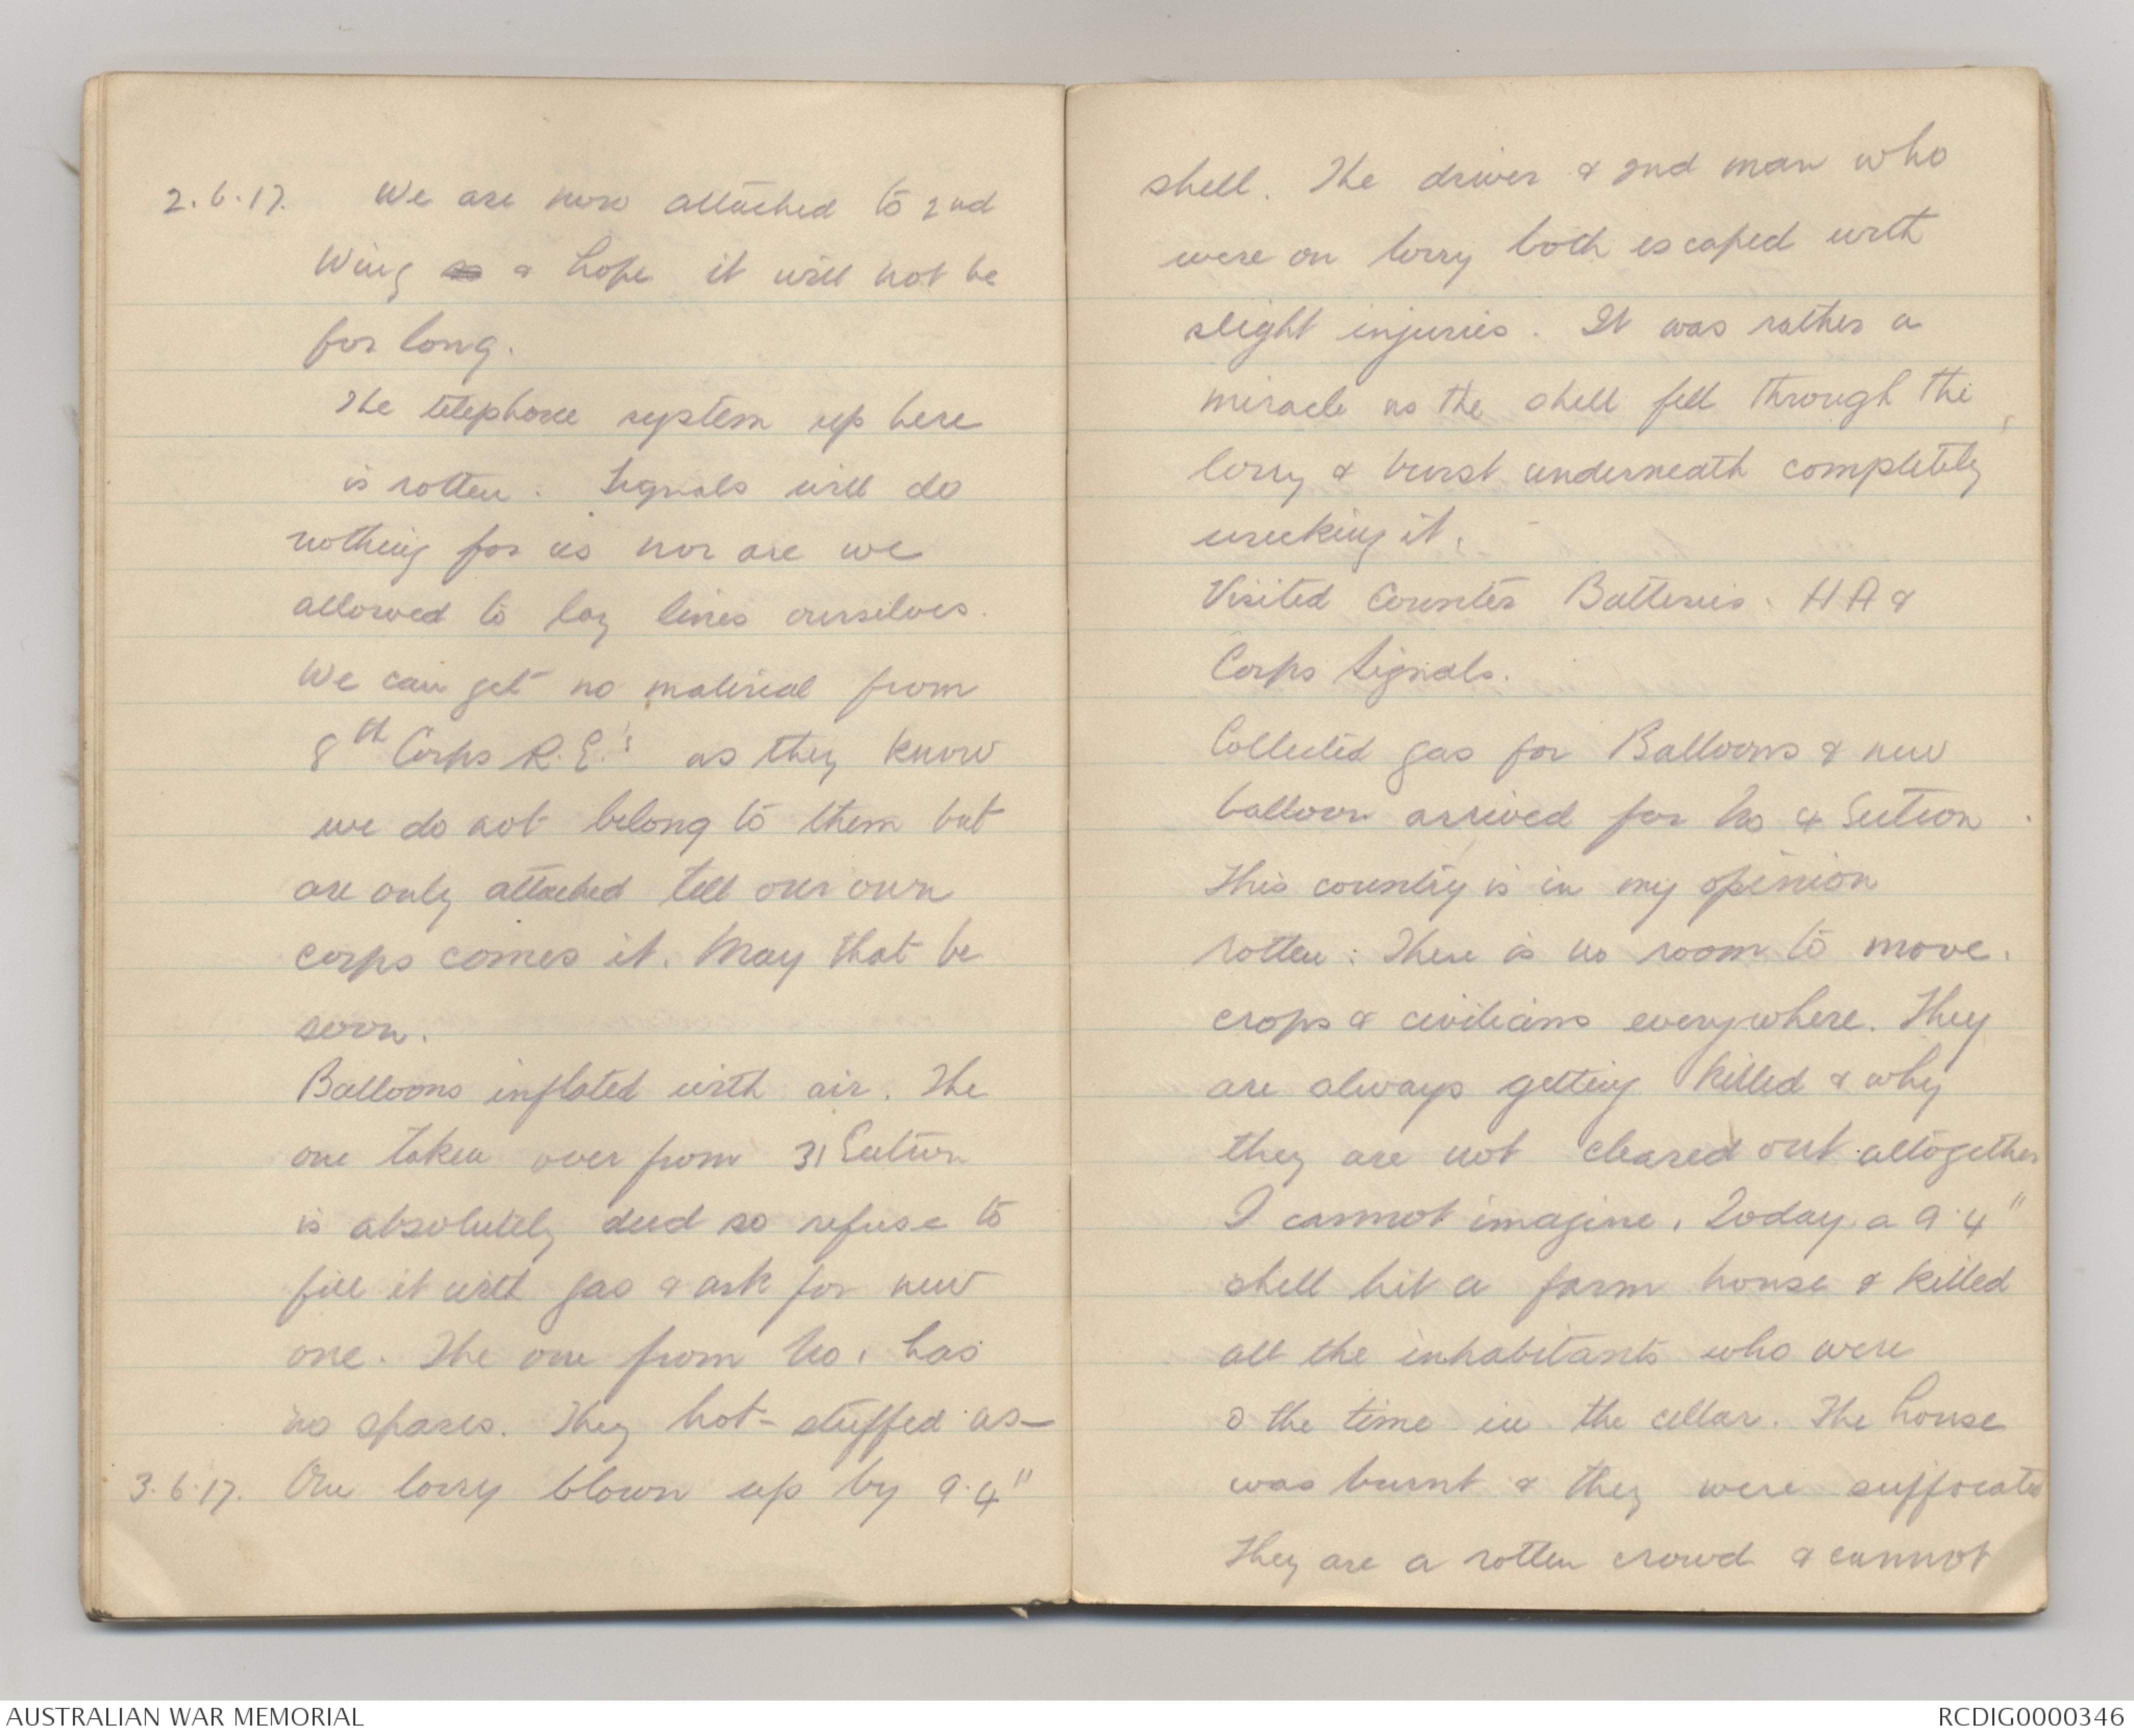 2.6.17. We are now attached to 2nd
Wing & hope it will not be
for long.
The telephone system up here
is rotten. Signals will do
nothing for us nor are we
allowed to lay lines ourselves.
We can get no material from
8th Corps R.E.'s as they know
we do not belong to them but
are only attached till our own
corps comes it. May that be
soon.
Balloons inflated with air. The
one taken over from 31 Section
is absolutely dud so refuse to
fill it with gas & ask for new
one. The one from No 1 has
no spares. They hot-stuffed as—
3.6.17. One lorry blown up by 9.4"
shell. The driver & 2nd man who
were on lorry both escaped with
slight injuries. It was rather a
miracle as the shell fell through the
lorry & burst underneath completely
wrecking it.
Visited Counter Batteries. HA &
Corps Signals.
Collected gas for Balloons & new
balloon arrived for No 4 Section.
This country is in my opinion
rotten: There is no room to move.
crops & civilians everywhere. They
are always getting killed & why
they are not cleared out altogether
I cannot imagine. Today a 9.4"
shell hit a farm house & killed
all the inhabitants who were
@ the time in the cellar. The house
was burnt & they were suffocated
They are a rotten crowd & cannot
AUSTRALIAN WAR MEMORIAL
RCDIG0000346